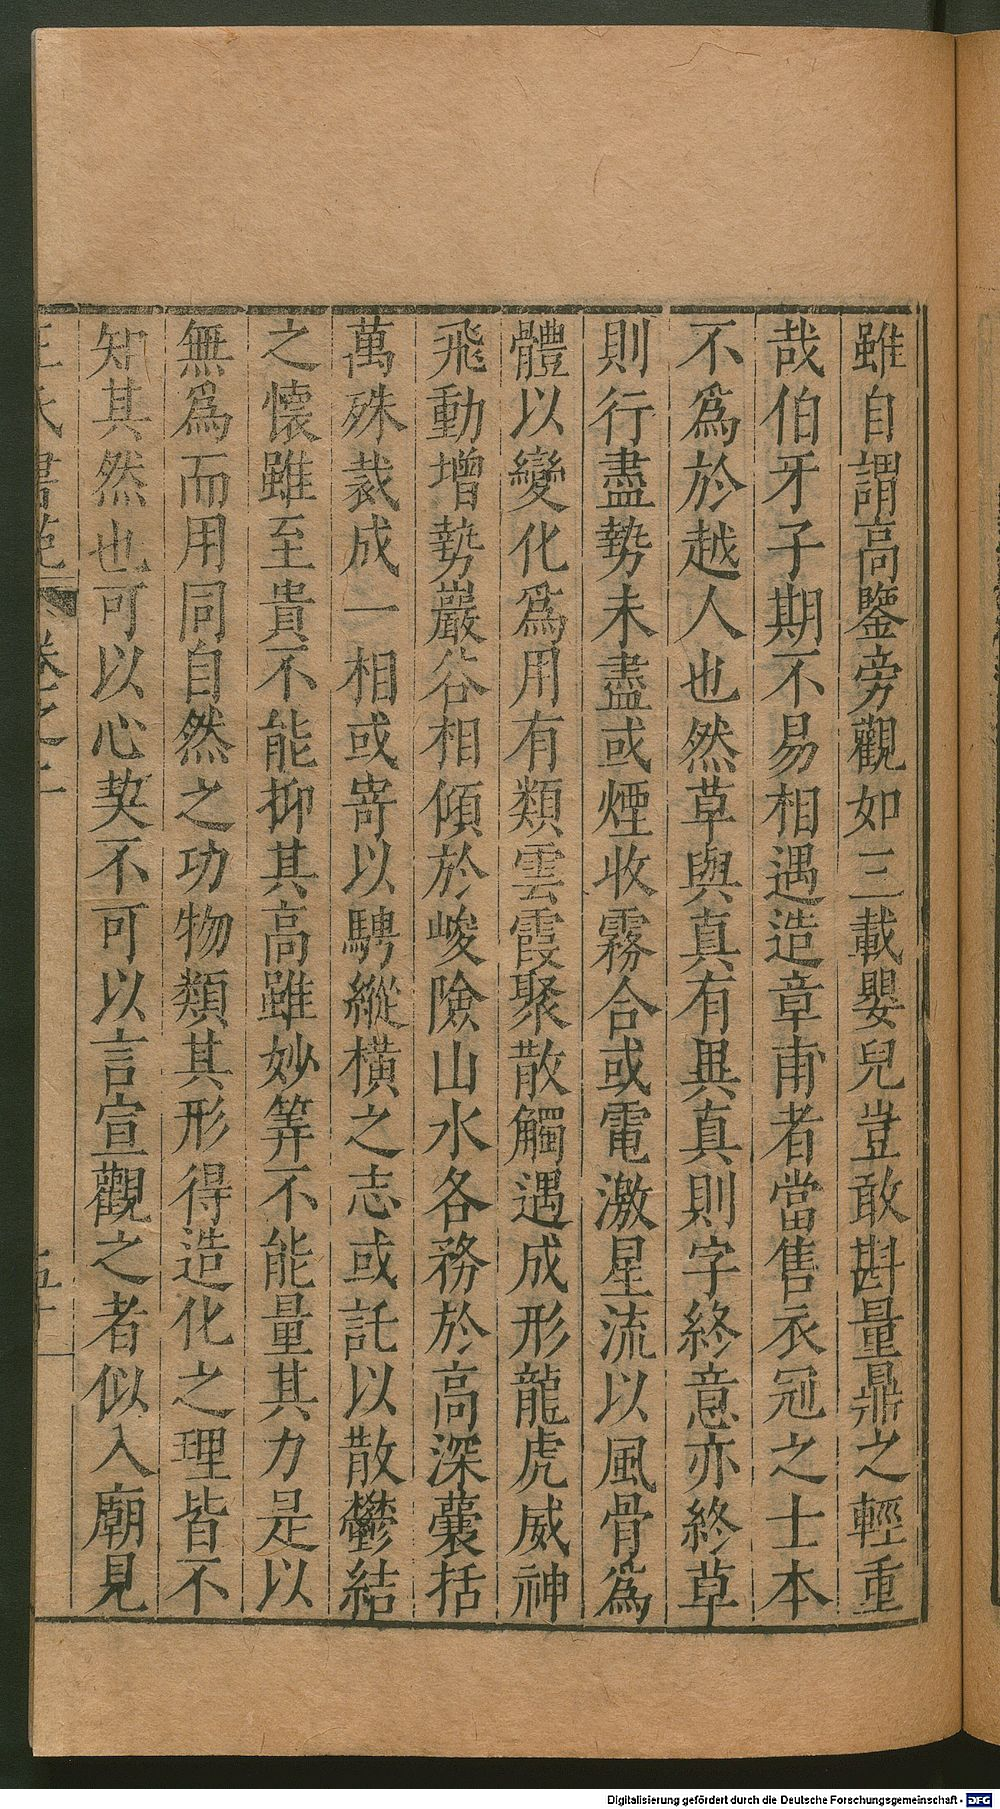 雖自謂高鑒旁觀如三載嬰兒豈敢斟量鼎之輕重
哉伯牙子期不易相遇造章甫者當售衣冠之士本
不爲於越人也然草與真有異真則字終意亦終草
則行盡勢未盡或煙收霧合或電激星流以風骨爲
體以變化爲用有類雲霞聚散觸遇成形龍虎威神
飛動增勢巖谷相傾於峻險山水各務於高深囊括
萬殊裁成一相或寄以騁縱橫之志或託以散鬱結
之懷雖至貴不能抑其高雖妙筭不能量其力是以
無爲而用同自然之功物類其形得造化之理皆不
知其然也可以心契不可以言宣觀之者似入廟見
王氏書苑 卷之二 五十一
Digitalisierung gefördert durch die Deutsche Forschungsgemeinschaft - DFG